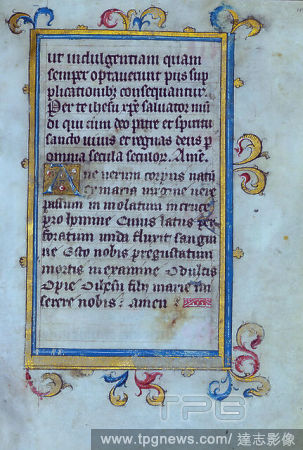 ut indulgentiam quam
semper optaverunt piis sup
plicationibꝫ consequantur.
Per te ihesu xp̄e salvator mū
di qui cum deo patre et spiritu
sancto vivis et regnas deus p
omnia secula seculoꝝ. Amē.
Ave verum corpus natū
ex maria virgine vere
passum in molatum in cruce
pro homine Cuius latus per
foratum unda fluxit sangui
ne Esto nobis pregustatum
mortis in examine O dulcis
O pie O ihesu fily marie mi
serere nobis: amen
TPG
www.tpgnews.com/ 達志影像